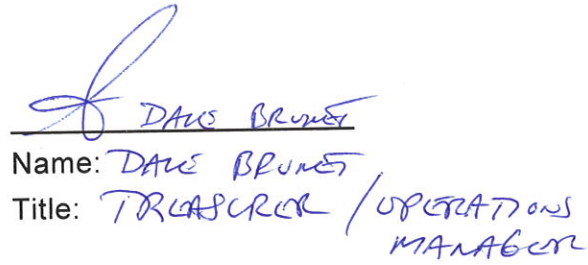 DALE BRUNET
Name: DALE BRUNET
Title: TREASURER / OPERATIONS
MANAGER